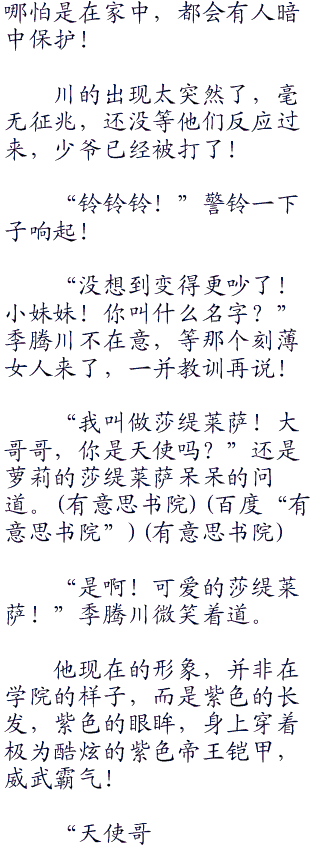 哪怕是在家中，都会有人暗
中保护！
川的出现太突然了，毫
无征兆，还没等他们反应过
来，少爷已经被打了！
“铃铃铃！”警铃一下
子响起！
“没想到变得更吵了！
小妹妹！你叫什么名字？”
季腾川不在意，等那个刻薄
女人来了，一并教训再说！
“我叫做莎缇莱萨！大
哥哥，你是天使吗？”还是
萝莉的莎缇莱萨呆呆的问
道。(有意思书院)(百度“有
意思书院”)(有意思书院)
“是啊！可爱的莎缇莱
萨！”季腾川微笑着道。
他现在的形象，并非在
学院的样子，而是紫色的长
发，紫色的眼眸，身上穿着
极为酷炫的紫色帝王铠甲，
威武霸气！
“天使哥